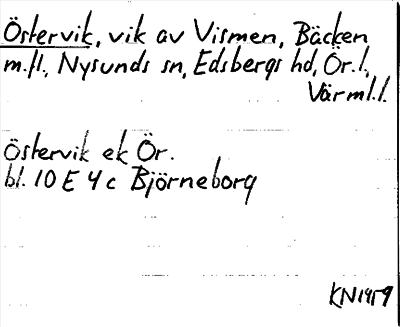 Östervik, vik av Vismen, Bäcken
m.fl., Nysunds sn, Edsbergs hd, Ör.l.,
Värml.l.
Östervik ek Ör.
bl. 10 E 4 c Björneborg
KN1959